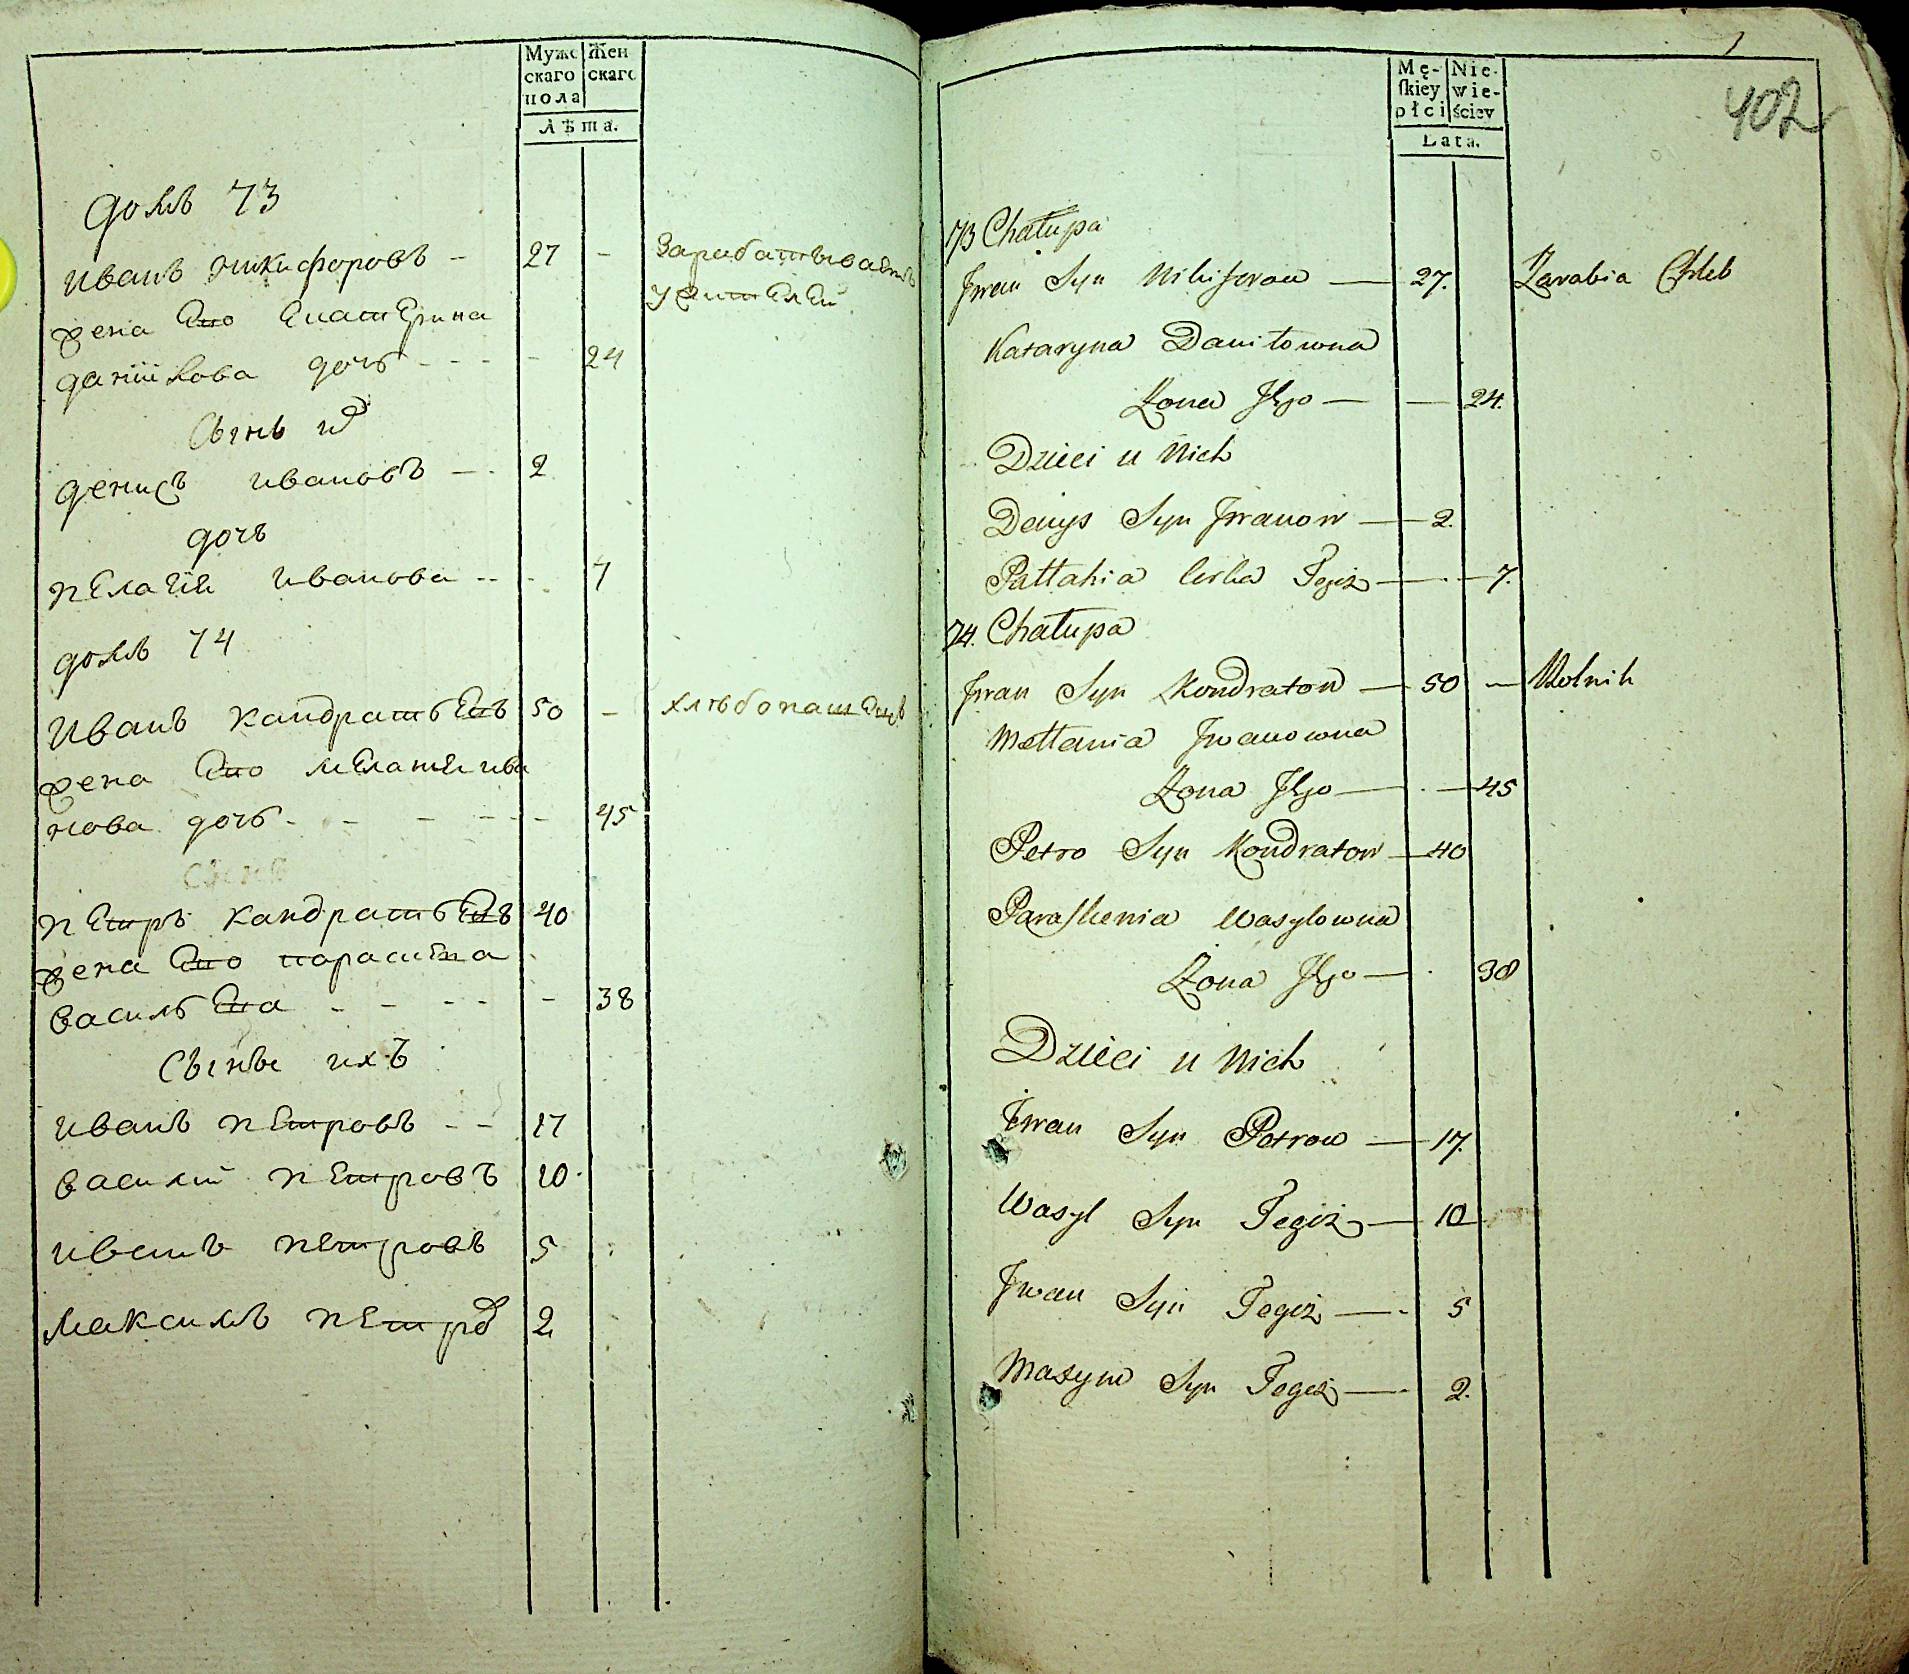 Мужс
скаго
пола
Жен
скаго
Лѣта.
домъ 73
иванъ никифоровъ - 27 - Зарабатываетъ
жена Его Екатерина
данiилова дочь - - - - 24
Сынъ
денисъ ивановъ - - 2
дочь
пЕлагiя иванова - - - 7
домъ 74
иванъ кандратьЕвъ 50 - хлѣбопашЕцъ
жена Его мЕланiя ива
нова дочь - - - - - 45
пЕтръ кандратьЕвъ 40
жена Его
васильЕва - - - - - 38
Сыны ихъ
иванъ пЕтровъ - - 17
василий пЕтровъ 10
иванъ пЕтровъ 5
максимъ пЕтров 2
Mę-
skiey
płci
Nie-
wie-
ściey
Lata.
402
73 Chałupa
Jwan Syn Nikiforow — 27. Zarabia Chleb
Kataryna Daniłowna
Żona Jego — — 24.
Dzieci u Nich
Denys Syn Jwanow — 2.
Pallahia Corka Tegoż — — 7.
74. Chałupa
Jwan Syn Kondratow — 50 — Rolnik
Mellania Jwanowna
Żona Jego — — 45
Petro Syn Kondratow — 40
Paraskewia Wasylowna
Żona Jego — 38
Dzieci u Nich
Jwan Syn Petrow — 17.
Wasyl Syn Tegoż — 10
Jwan Syn Tegoż — 5
Maxym Syn Tegoż — 2.